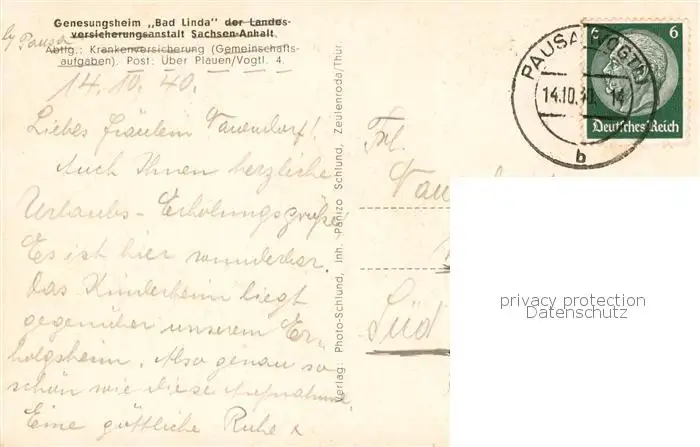 Genesungsheim „Bad Linda" der Landes-
versicherungsanstalt Sachsen-Anhalt
Abtlg.: Krankenversicherung (Gemeinschafts-
aufgaben). Post: Über Plauen/Vogtl. 4.
by Pausa
14.10.40.
Liebes Fräulein Tauendorf!
Auch Ihnen herzliche
Urlaubs-Erholungsgrüße
Es ist hier wunderbar.
Das Kinderheim liegt
gegenüber unserem Er-
holgsheim. Also genau so
schön wie diese Aufnahme.
Eine göttliche Ruhe
Verlag: Photo-Schlund, Inh. Panizo Schlund, Zeulenroda/Thür.
PAUSA (VOGTL)
14.10.40. 14
b
6 6
Deutsches Reich
Frl.
Süd
privacy protection
Datenschutz